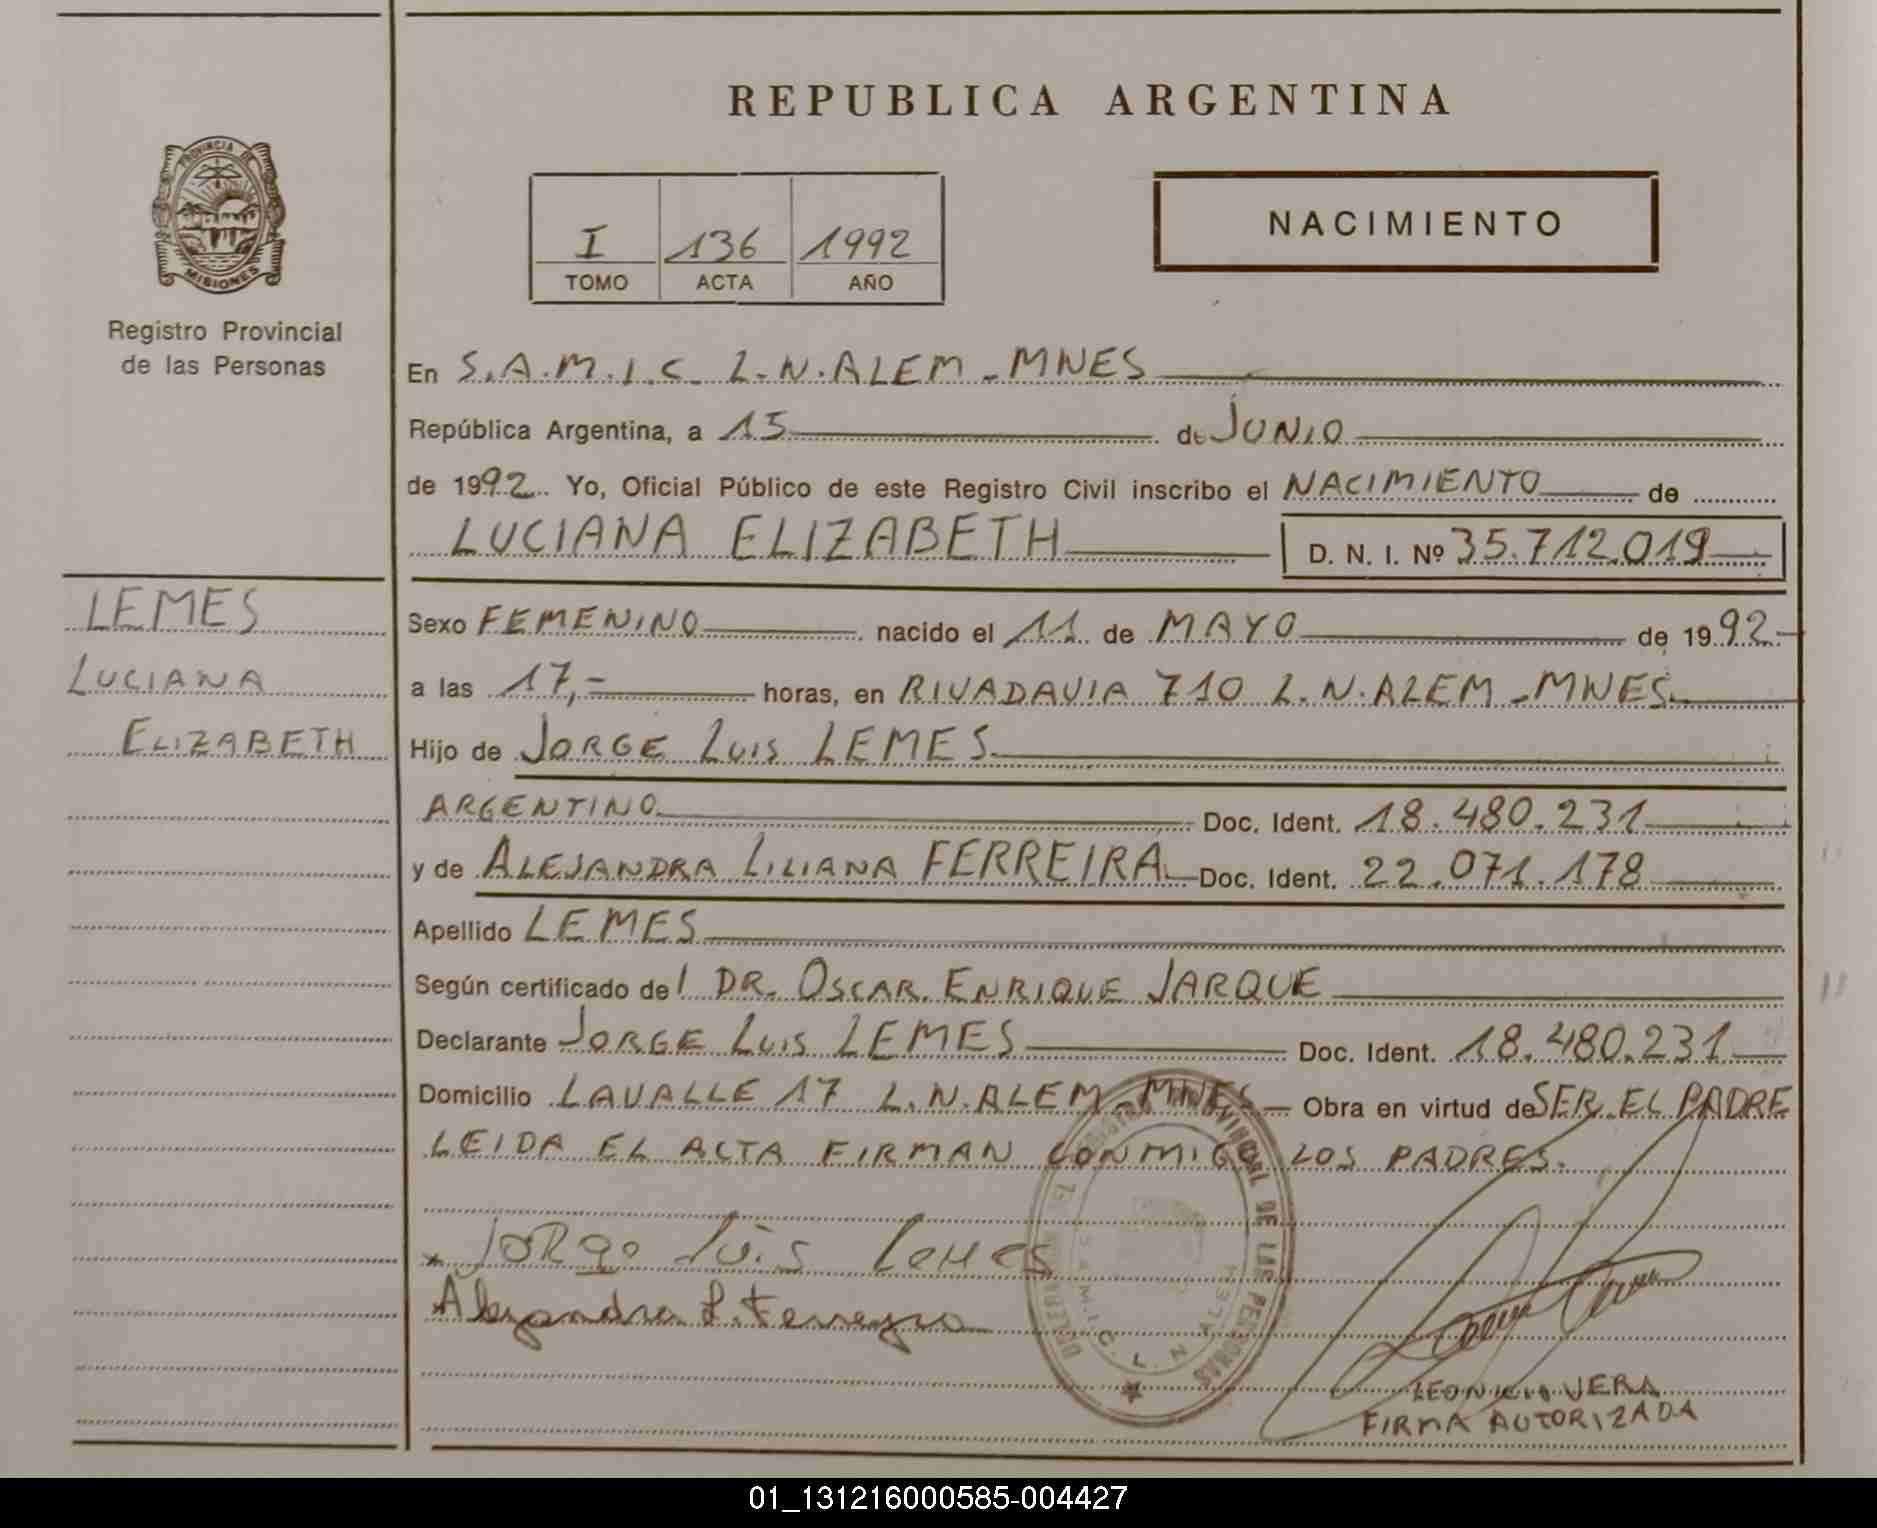 REPUBLICA ARGENTINA
PROVINCIA DE
MISIONES
Registro Provincial
de las Personas
I 136 1992
TOMO ACTA AÑO
NACIMIENTO
En S.A.M.I.C. L.N.ALEM - MNES
República Argentina, a 15 de JUNIO
de 1992. Yo, Oficial Público de este Registro Civil inscribo el NACIMIENTO de
LUCIANA ELIZABETH D. N. I. Nº 35.712.019
LEMES
LUCIANA
ELIZABETH
Sexo FEMENINO nacido el 11 de MAYO de 1992-
a las 17,- horas, en RIVADAVIA 710 L.N.ALEM - MNES.
Hijo de JORGE LUIS LEMES
ARGENTINO Doc. Ident. 18.480.231
y de ALEJANDRA LILIANA FERREIRA Doc. Ident. 22.071.178
Apellido LEMES
Según certificado del DR. OSCAR ENRIQUE JARQUE
Declarante JORGE LUIS LEMES Doc. Ident. 18.480.231
Domicilio LAVALLE 17 L.N.ALEM - MNES Obra en virtud de SER EL PADRE
LEIDA EL ACTA FIRMAN CONMIGO LOS PADRES.
JORGE Luis Lemes
Alejandra L. Ferreyra
PROVINCIAL DE LAS PERSONAS
S.A.M.I.C. L. N. ALEM
VERA
FIRMA AUTORIZADA
01_131216000585-004427